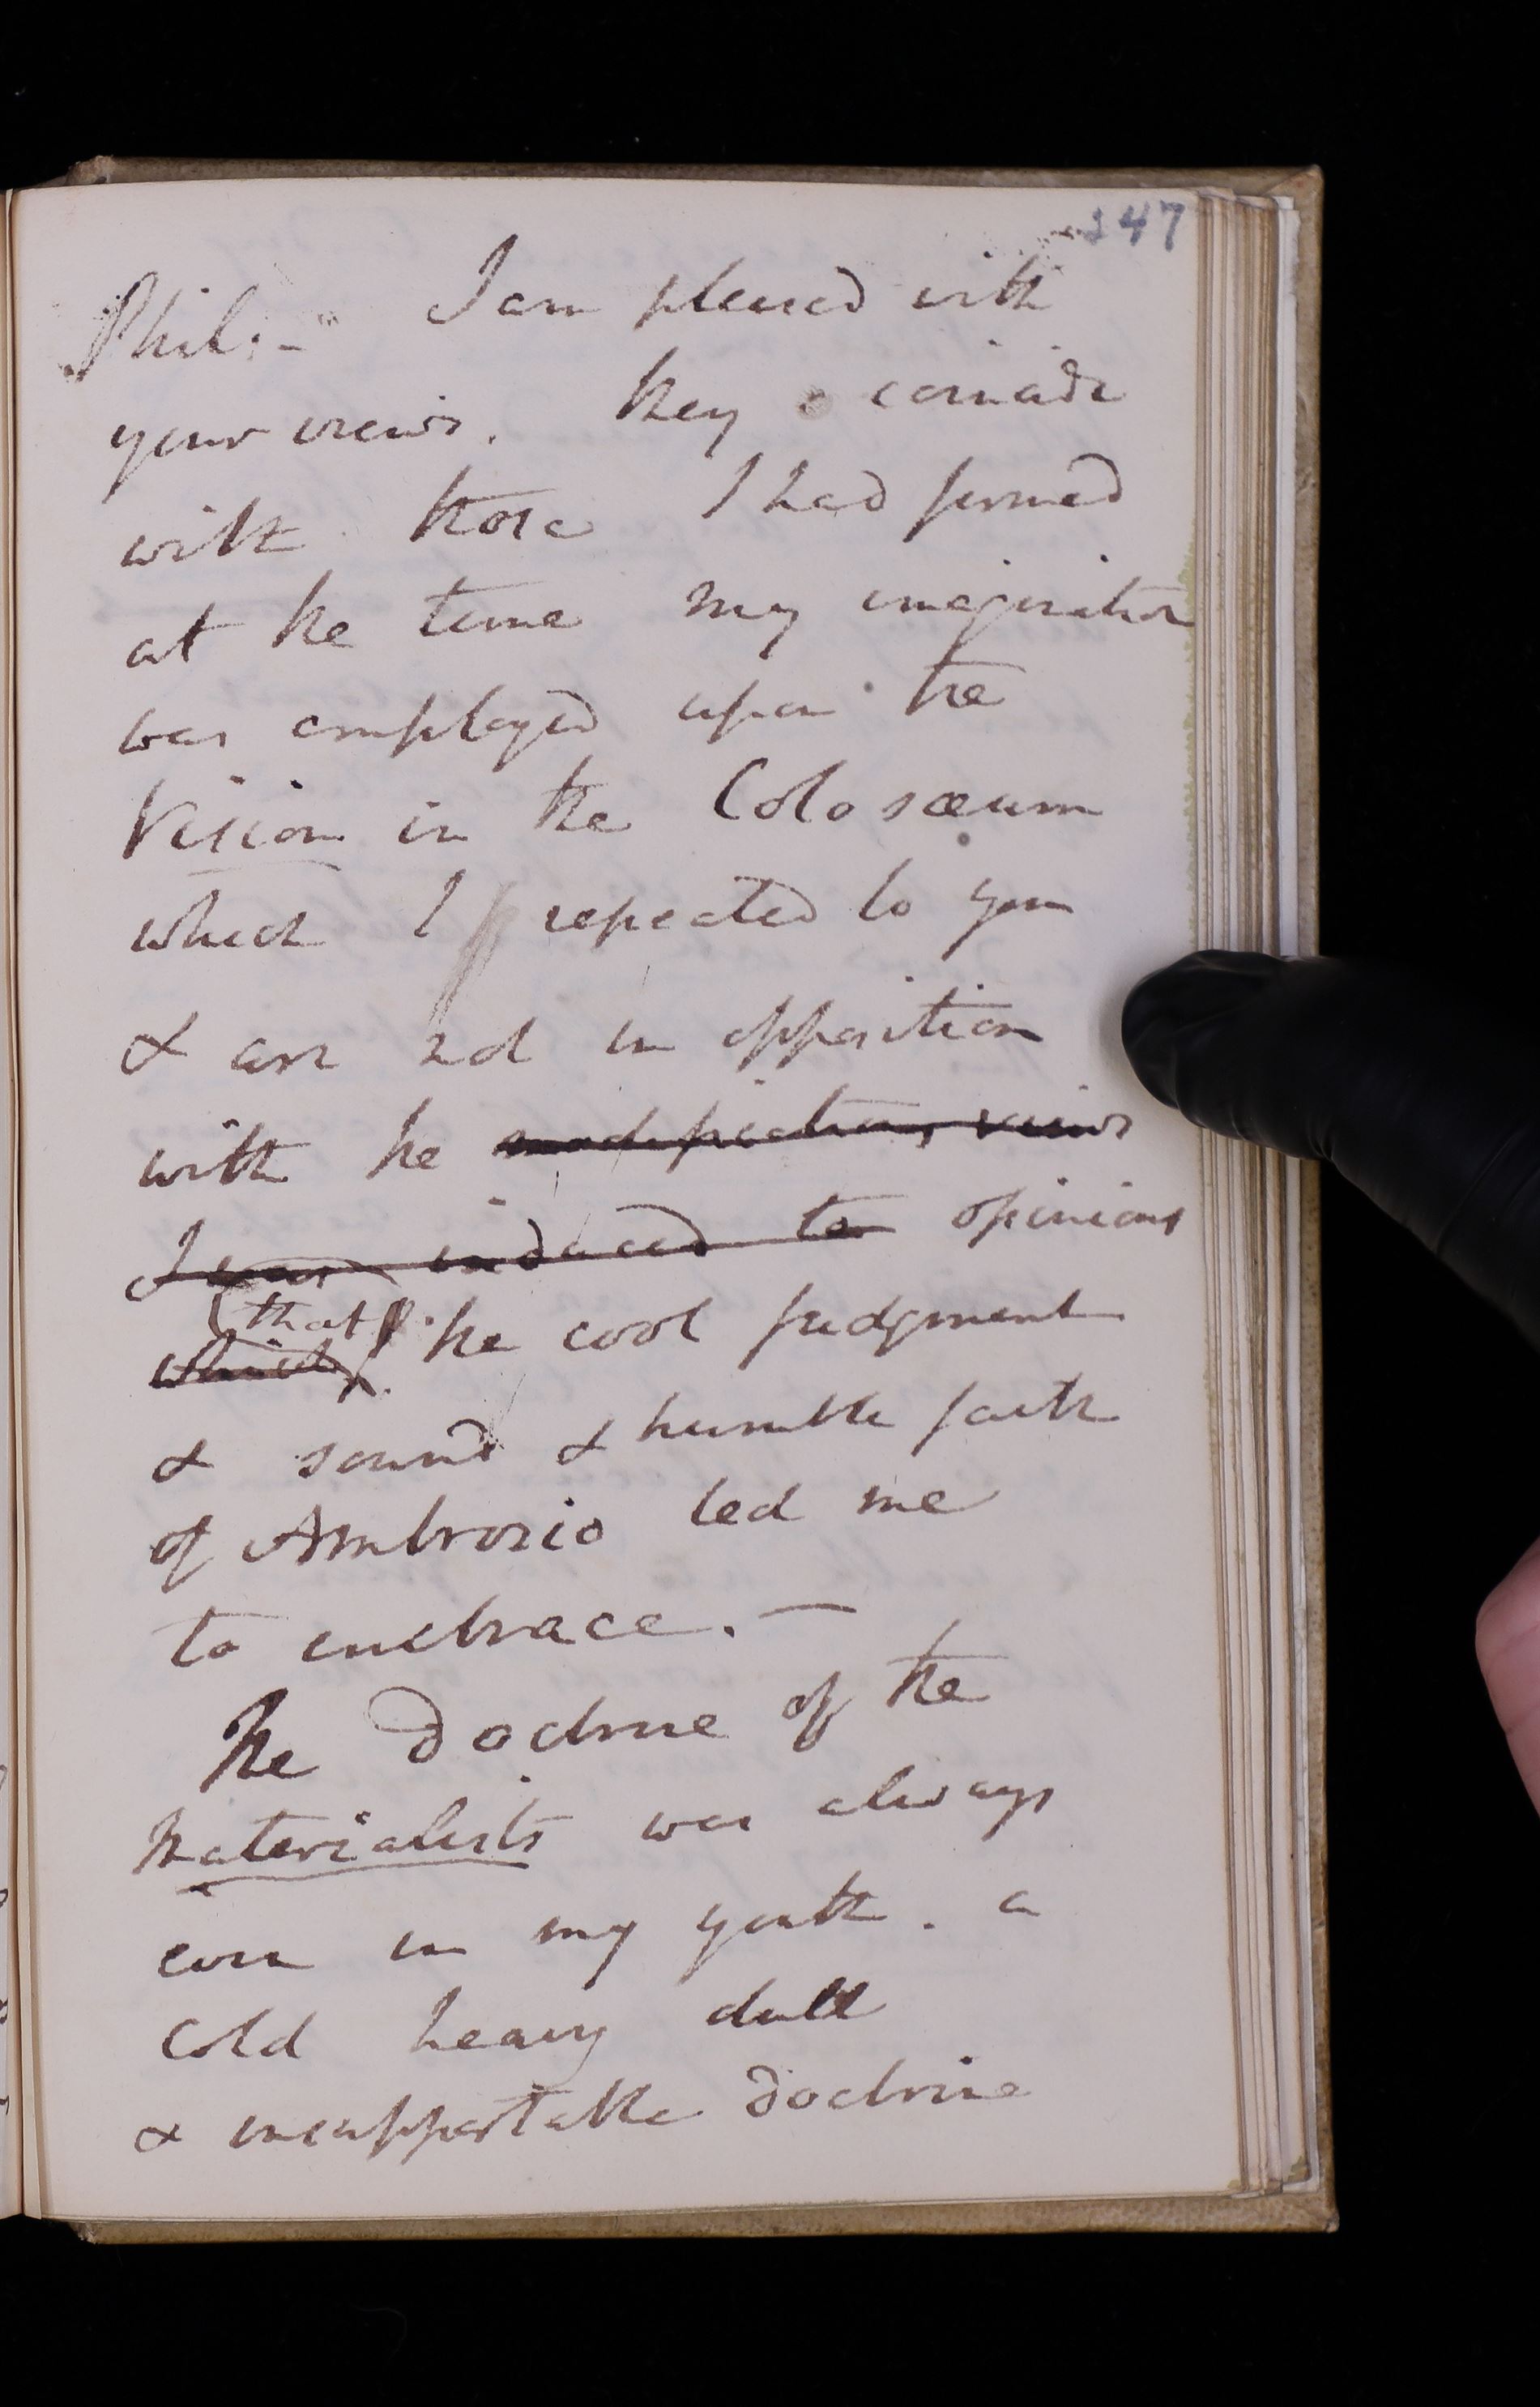 247
Phil:- " I am pleased with
your views. they coincide
with those I had formed
at the time my imagination
was employed upon the
Vision in the Colosæum
which I repeated to you
& are not in opposition
with the modifications, views
I was induced to opinions
that
which the cool judgment
& sound & humble faith
of Ambrosio led me
to embrace. —
The Doctrine of the
Materialists was always
even in my youth. a
cold heavy dull
& insupportable doctrine